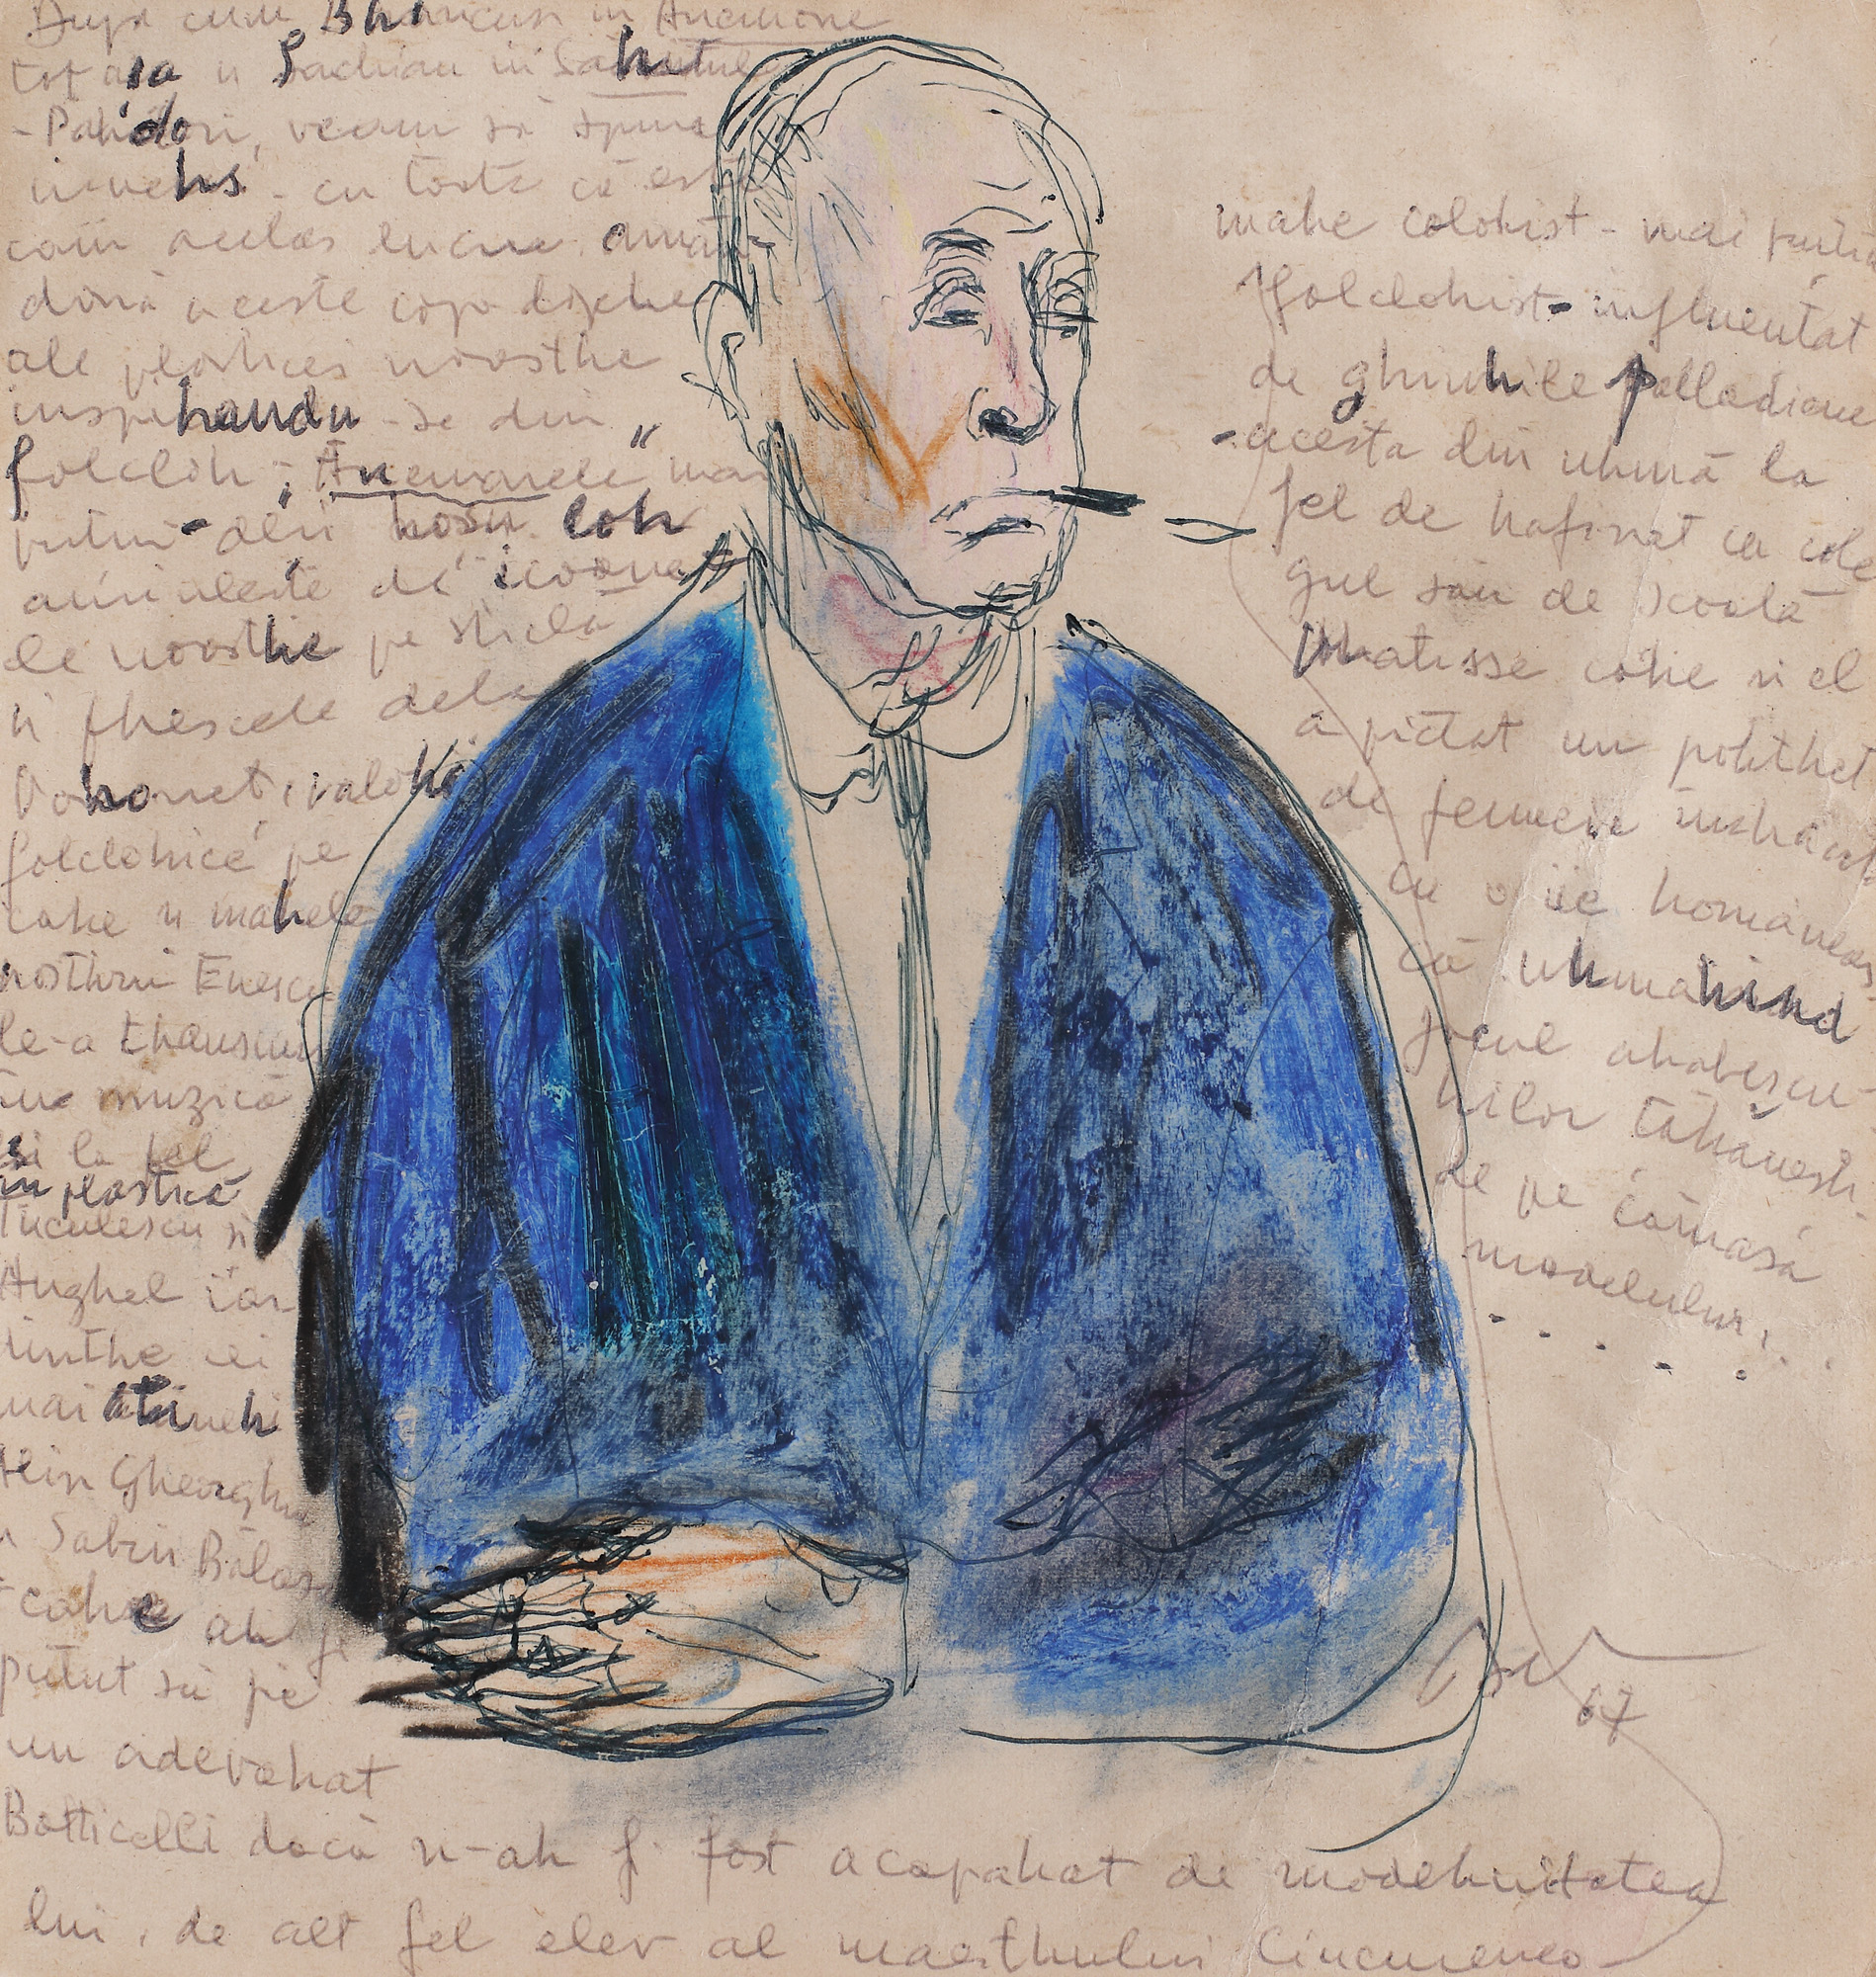 După cum Brâncuși in Anemone
tot așa și Luchian in Sărutul
- Pardon, vream să spun
invers - cu toate că este
cam acelas lucru amân
două aceste capo d'opere
ale plasticei noastre
inspirandu-se din
folclor; "Anemonele" mai
puțin - deși rosu lor
aminteste de icoane
le noastre pe sticlă
și frescele dela
Voroneț, valori
folclorice pe
care și marele
nostru Enescu
le-a transcris
în muzică
și la fel
in plastică
Țuculescu și
Anghel iar
dintre cei
mai tineri
Alin Gheorghiu
și Sabin Bălașa
- care ar fi
putut să fie
un adevarat
Botticelli dacă n-ar fi fost acaparat de modernitatea
lui, de alt fel elev al maestrului Ciucurenco -
mare colorist - mai puțin
folclorist - influentat
de griurile palladiene
- acesta din urmă la
fel de rafinat ca cole
gul său de școală
Matisse care și el
a pictat un portret
de femeie imbracat
cu o iie romaneas
că urmarind
jocul arabescu-
rilor țărănești
de pe cămașă
modelului.
67